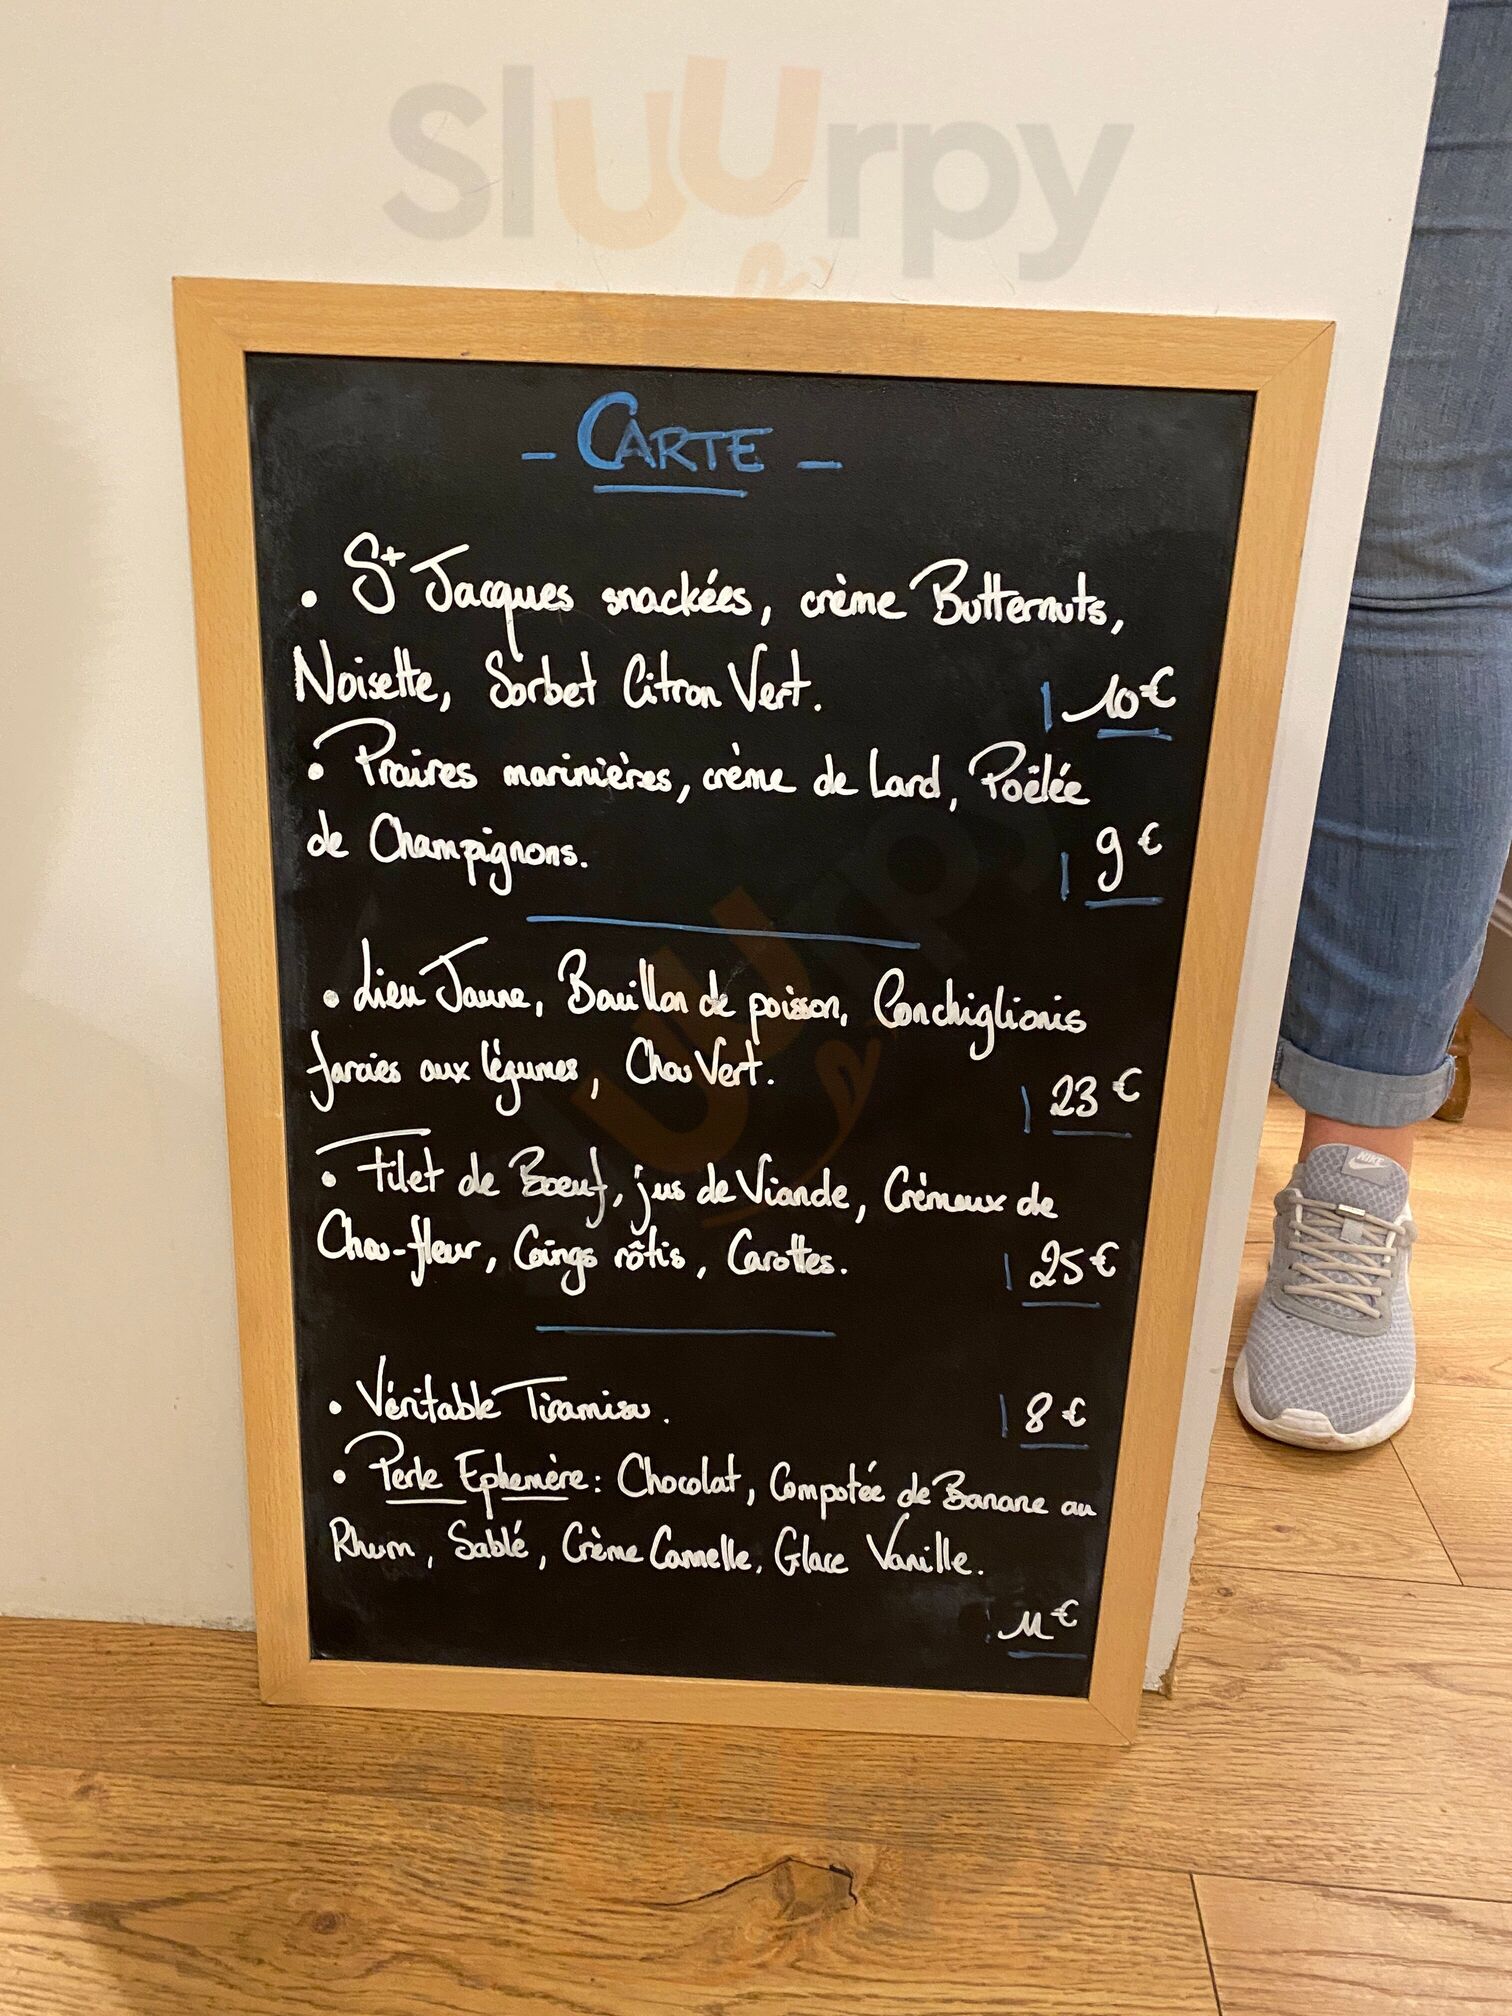 Sluurpy
- CARTE -
• St Jacques snackées, crème Butternuts,
Noisette, Sorbet Citron Vert. | 10€
• Praires marinières, crème de Lard, Poêlée
de Champignons. | 9€
• Lieu Jaune, Bouillon de poisson, Conchiglionis
farcies aux légumes, Chou Vert. | 23€
• Filet de Boeuf, jus de Viande, Crémeux de
Chou-fleur, Coings rôtis, Carottes. | 25€
• Véritable Tiramisu. | 8€
• Perle Ephemère : Chocolat, Compotée de Banane au
Rhum, Sablé, Crème Cannelle, Glace Vanille.
| 11€
NIKE